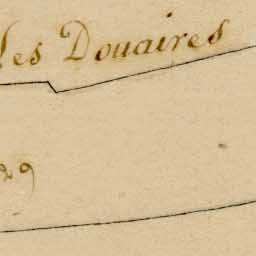 les Douaires
29